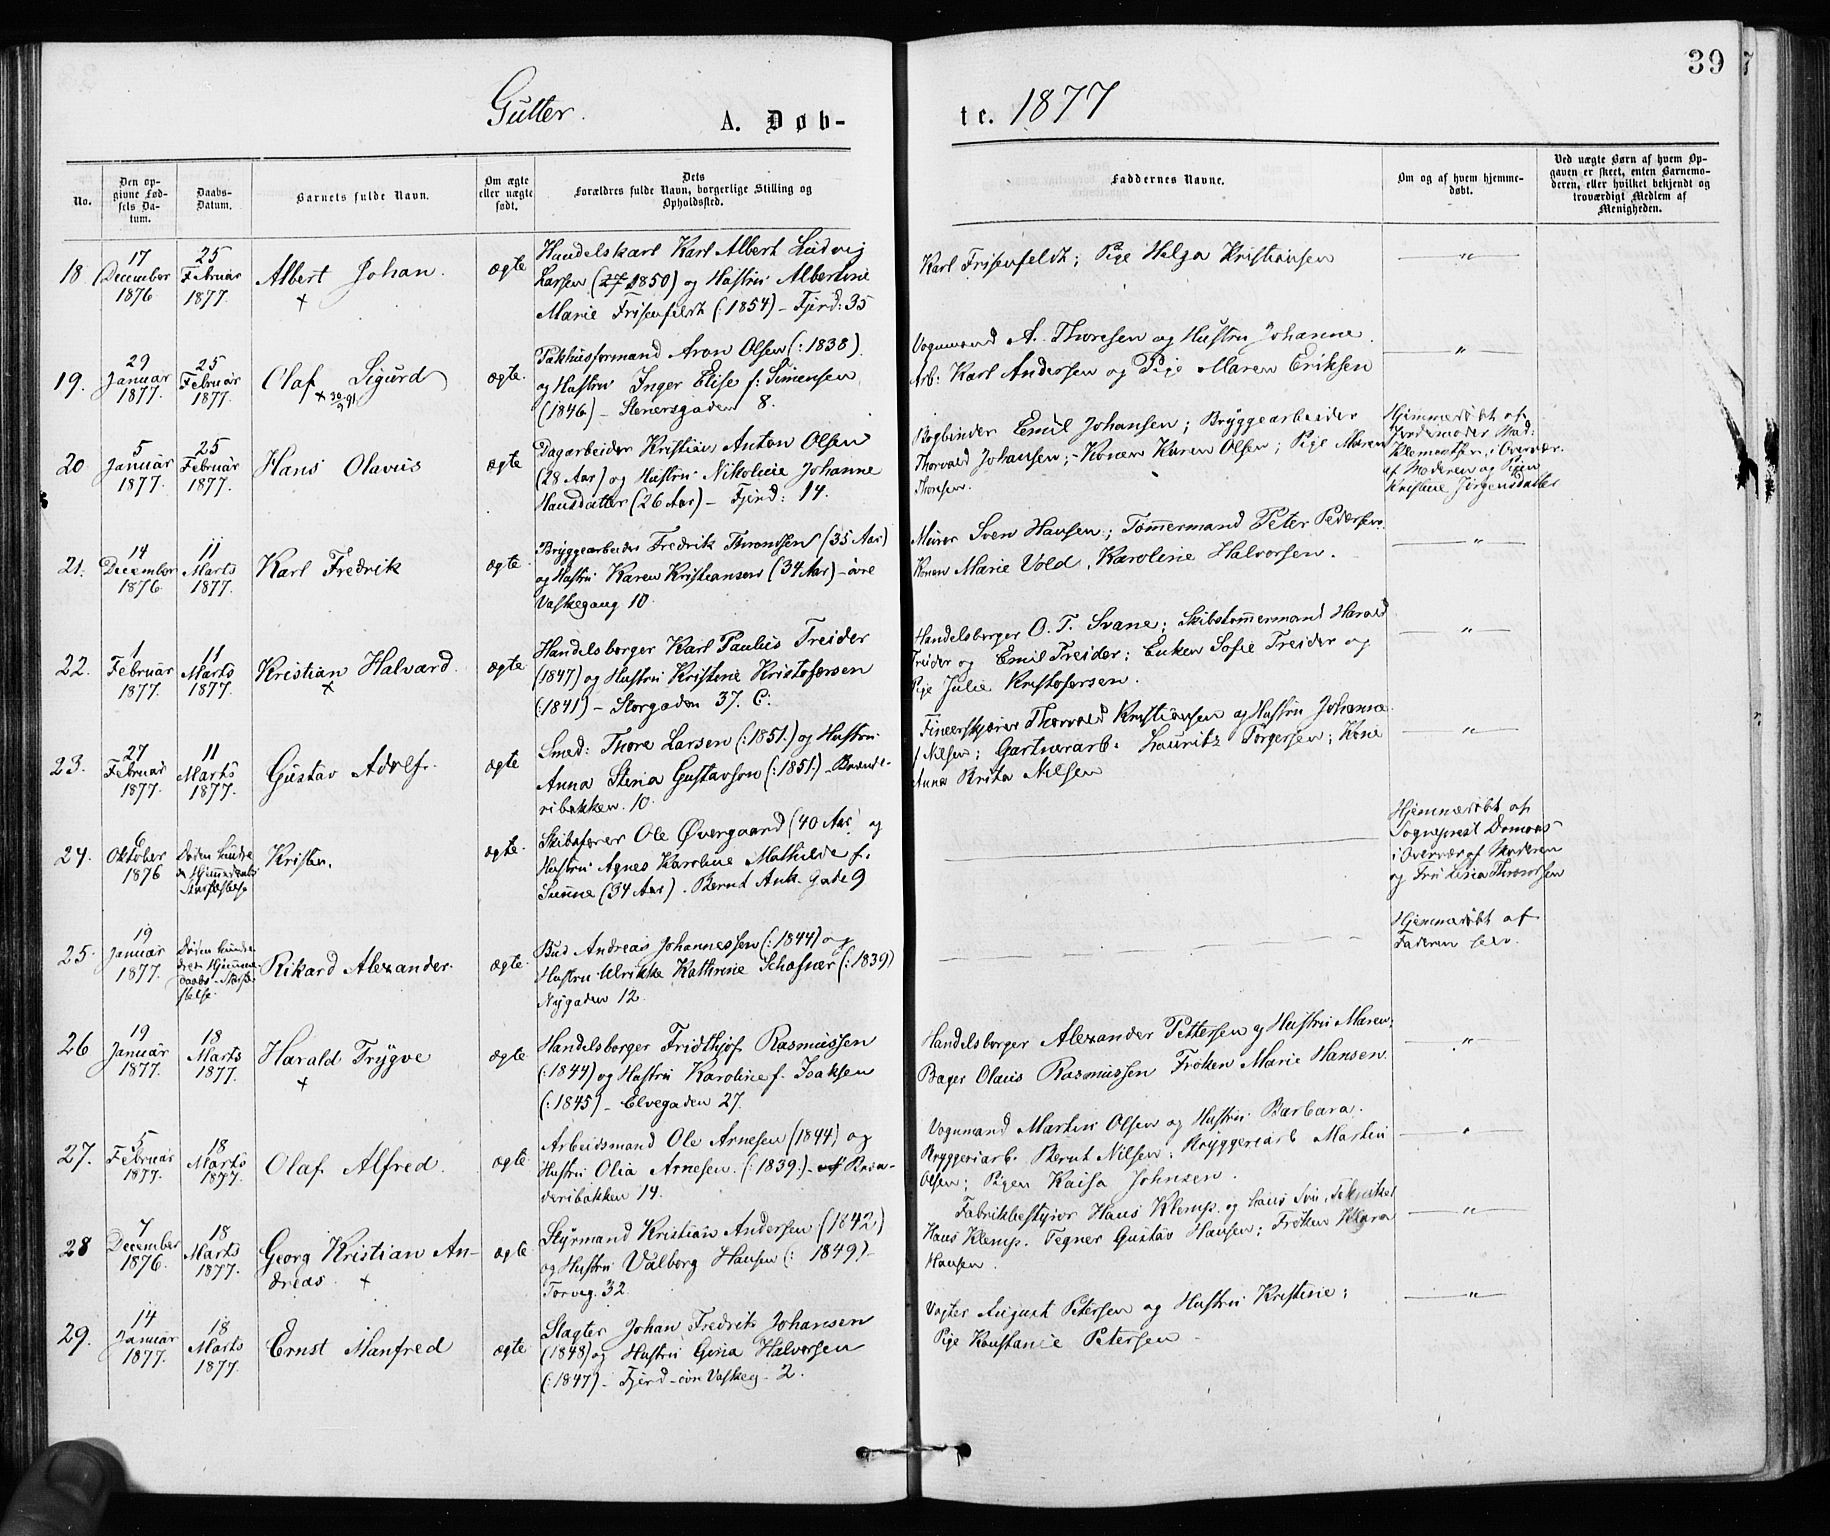 39
Gutter.
A. Døb-
te. 1877
No.
Den op-
givne Fød-
sels Da-
tum.
Daabs-
Datum.
Barnets fulde Navn.
Om ægte
eller uægte
født.
Dets
Forældres fulde Navn, borgerlige Stilling og
Opholdssted.
Faddernes Navne.
Om og af hvem hjemme-
døbt.
Ved uægte Børn af hvem Op-
gaven er skeet, enten Barnemo-
deren, eller hvilket bekjendt og
troværdigt Medlem af
Menigheden.
18
17
December
1876
25
Februar
1877.
Albert Johan.
+
ægte
Handelskarl Karl Albert Ludvig
Larsen (27 1850) og Hustru Albertine
Marie Frisenfeldt (: 1854) – Fjerd: 35
Karl Frisenfeldt; Pige Helga Kristiansen
— " —
19.
29
Januar
1877.
25
Februar
1877.
Olaf Sigurd
+ 30/9 91
ægte.
Pakhusformand Aron Olsen (: 1838)
og Hustru Inger Elise f. Simensen
(1846) – Stenersgaden 8.
Vognmand A. Thoresen og Hustru Johanne
Arb: Karl Andersen og Pige Maren Eriksen
— " —
20
5
Januar
1877.
25
Februar
1877.
Hans Olavus
ægte
Dagarbeider Kristian Anton Olsen
(28 Aar) og Hustru Nikoline Johanne
Hansdatter (26 Aar) – Fjerd: 14.
Bogbinder Emil Johansen; Bryggearbeider
Thorvald Johansen; – Konen Karen Olsen; Pige Maren
Thoresen.
Hjemmedøbt af
Jordemoder Mad:
Klementsen, i Overvær
af Moderen og Pigen
Kristine Jørgensdatter
21.
14
December
1876
11
Marts
1877.
Karl Fredrik
ægte
Bryggearbeider Fredrik Thronsen (35 Aar)
og Hustru Karen Kristiansen (34 Aar) – øvre
Vaskegang 10.
Murer Sven Hansen; Tømmermand Peter Pedersen.
Konen Marie Vold, Karoline Halvorsen.
— " —
22.
1
Februar
1877.
11
Marts
1877.
Kristian Halvard.
+
ægte
Handelsborger Karl Paulus Treider
(1847) og Hustru Kristine Kristofersen
(: 1841) – Storgaden 37. C.
Handelsborger O. T. Svane; Skibstømmermand Harald
Treider og Emil Treider; Enken Sofie Treider og
Pige Julie Kristofersen.
— " —
23.
27
Februar
1877.
11
Marts
1877.
Gustav Adolf.
ægte
Smed: Thore Larsen (: 1851.) og Hustru
Anna Stena Gustavson (: 1851.) – Brænde-
ribakken. 10.
Fineerskjærer Thorvald Kristiansen og Hustru Johanne
f. Nilsen; Gartnerarb. Lauritz Jørgensen; Kone
Anna Brita Nilsen
— " —
24.
6
Oktober
1876
Døden hindre
de Hjemmedaabs
Stadfæstelse
Kristen.
ægte.
Skibsfører Ole Øvergaard (40 Aar) og
Hustru Agnes Karoline Mathilde f.
Sunne (34 Aar). Bernt Ank. Gade 9
Hjemmedøbt af
Sogneprest Damons
i Overvær af Moderen
og Fru Lina Thorsen
25.
19
Januar
1877.
Døden hindre
den Hjemme
daabs-Stadfæ-
stelse.
Rikard Alexander.
ægte.
Bud Andreas Johannessen (: 1844) og
Hustru Ulrikke Kathrine Schafner (: 1839)
Nygaden 12.
Hjemmedøbt af
Faderen selv.
26
19
Januar
1877.
18
Marts
1877.
Harald Trygve
+
ægte
Handelsborger Fridthjof Rasmussen
(: 1844) og Hustru Karoline f. Isaksen
(: 1845) – Elvegaden 27.
Handelsborger Alexander Pettersen og Hustru Maren;
Bager Olaus Rasmussen Frøken Marie Hansen.
— " —
27.
5
Februar
1877.
18
Marts
1877.
Olaf Alfred.
ægte
Arbeidsmand Ole Arnesen (1844) og
Hustru Olia Arnesen. (: 1839.) – Bræn-
deribakken 14.
Vognmand Martin Olsen og Hustru Barbara.
Bryggeriarb. Bernt Nilsen; Bryggeriarb Martin
Olsen; Pigen Kaisa Johnsen.
— " —
28
7
December
1876.
18
Marts
1877.
Georg Kristian An-
dreas. +
ægte
Styrmand Kristian Andersen (1842)
og Hustru Valborg Hansen (: 1849) –
Torveg. 32.
Fabrikbestyrer Hans Klemp. og hans Fru, Tekniker
Hans Klemp. Tegner Gustav Hansen; Frøken Klara
Hansen.
— " —
29.
14
Januar
1877.
18
Marts
1877.
Ernst Manfred
ægte
Slagter Johan Fredrik Johansen
(1848) og Hustru Gina Halvorsen
(: 1847) – Fjerd – øvre Vaskeg. 2.
Vogter August Petersen og Hustru Kristine;
Pige Konstance Petersen –
— " —